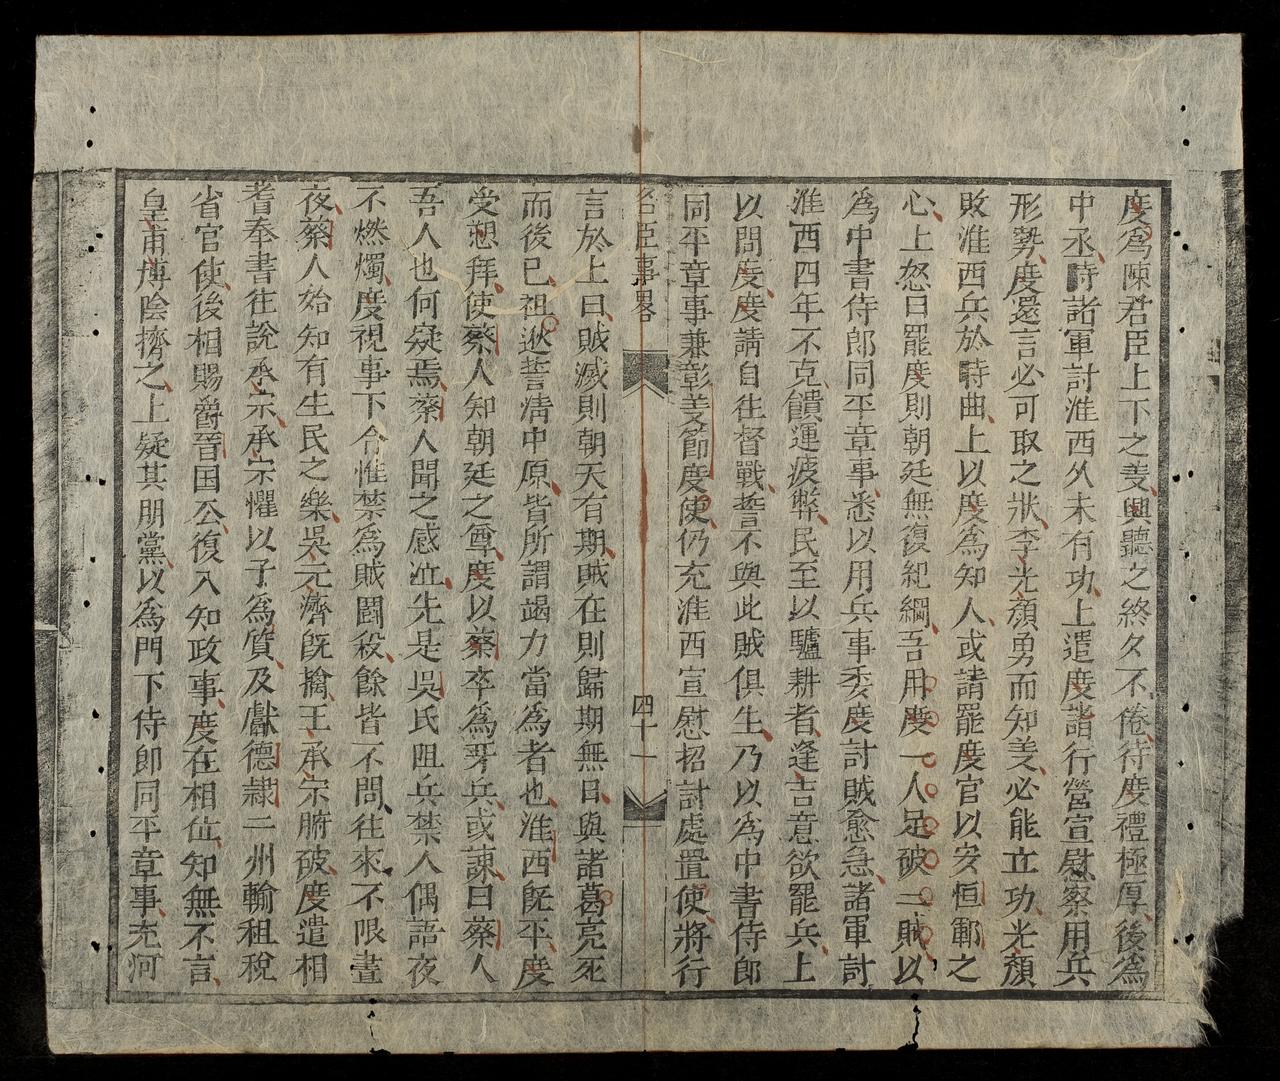 度爲陳君臣上下之義與聽之終夂不倦待度禮極厚後爲
中丞時諸軍討淮西夂未有功上遣度詣行營宣慰察用兵
形勢度還言必可取之狀李光顏勇而知義必能立功光顏
敗淮西兵於時曲上以度爲知人或請罷度官以安恒鄆之
心上怒曰罷度則朝廷無復紀綱吾用度一人足破二賊以
爲中書侍郎同平章事悉以用兵事委度討賊愈急諸軍討
淮西四年不克饋運疲弊民至以驢耕者逢吉意欲罷兵上
以問度度請自往督戰誓不與此賊俱生乃以爲中書侍郎
同平章事兼彰義節度使仍充淮西宣慰招討處置使將行
名臣事畧 四十一
言於上曰賊滅則朝天有期賊在則歸期無日與諸葛亮死
而後已祖逖誓清中原皆所謂竭力當爲者也淮西旣平度
受愬拜使蔡人知朝廷之尊度以蔡卒爲牙兵或諫曰蔡人
吾人也何疑焉蔡人聞之感泣先是吳氏阻兵禁人偶語夜
不燃燭度視事下令惟禁爲賊鬪殺餘皆不問往來不限晝
夜蔡人始知有生民之樂吳元濟旣擒王承宗腑破度遣相
耆奉書往說承宗承宗懼以子爲質及獻德隷二州輸租稅
省官使後相賜爵晉国公復入知政事度在相位知無不言
皇甫博陰擠之上疑其朋黨以爲門下侍郎同平章事充河